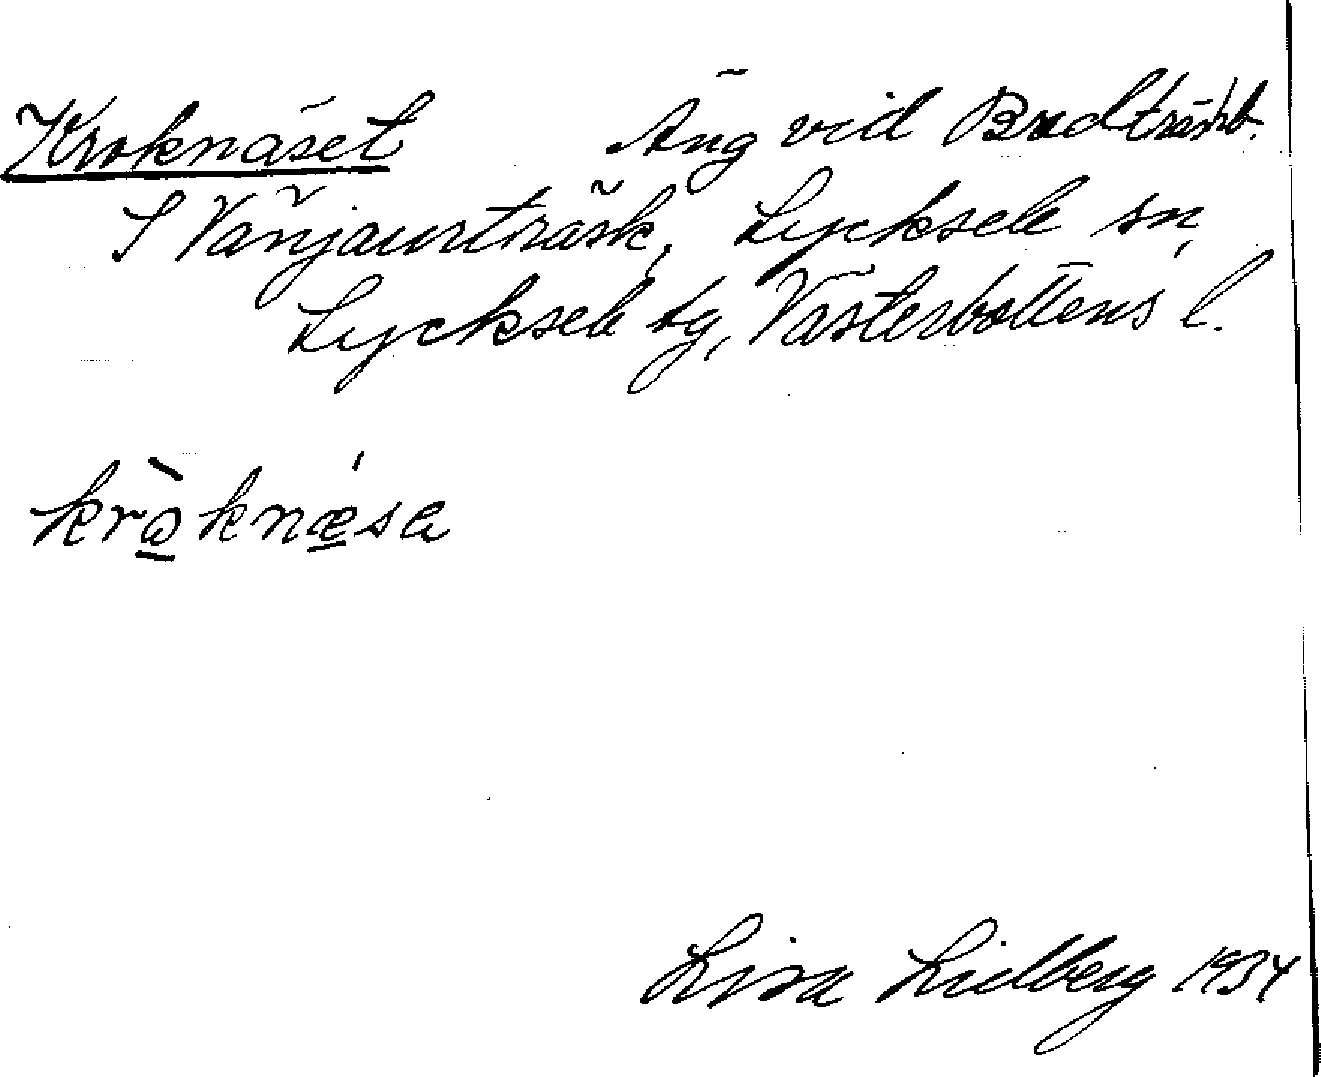 Kroknäset Äng vid Bredträsk.
S Vänjaurträsk, Lycksele sn,
Lycksele tg, Västerbottens l.
krɷ̀knǽsa
Lisa Lidberg 1934